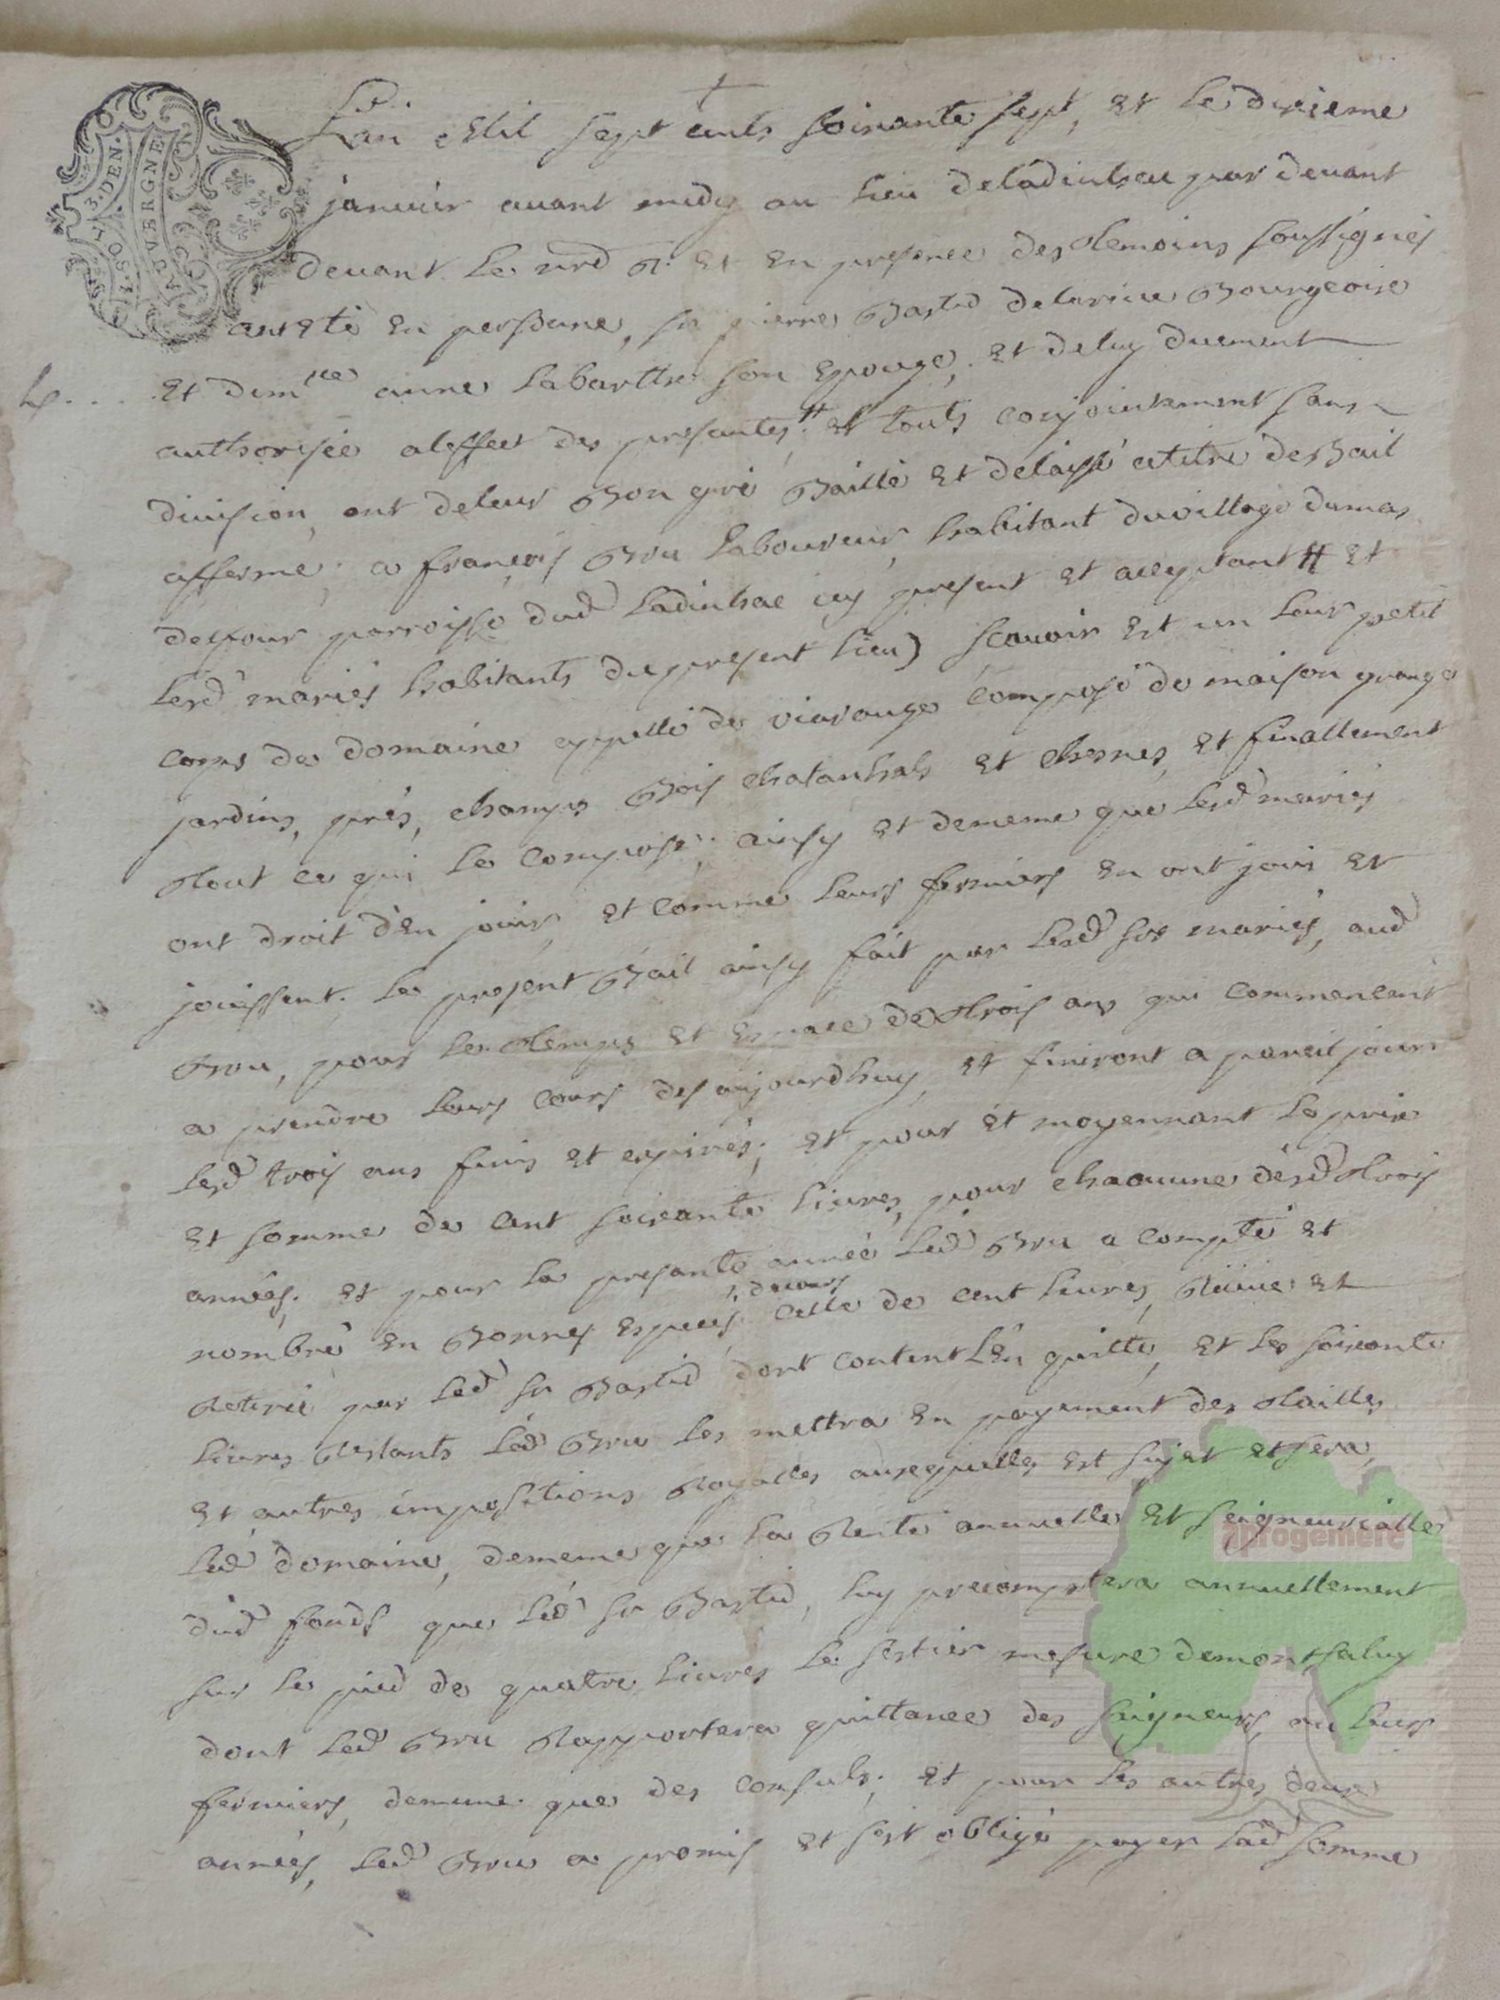 L'an Mil sept cents soixante sept, et le dixieme
janvier avant midy au lieu deladinhac par devant
devant le nre Rl. et en presence des temoins soussignés
AUVERGNE
3. DEN.
ont eté en personne, sr pierre Bastid Bourgeois
et dem.lle anne Labarthe son epouze, et deluy duement
authorisée aleffect des presantes, # et touts conjointement sans
division, ont deleur Bon gré Baillé et délaissé atitre de Bail
afferme, a françois Bru laboureur habitant duvillage dumas
delfour parroisse dud Ladinhac icy present et acceptant # et
lesd mariés habitants du present lieu) scavoir est un leur petit
corps de domaine appellé de viarouge composé de maison grange
jardins, près, champs Bois chatanhals et chesnes, et finallement
tout ce qui le compose, ainsy et dememe que lesd mariés
ont droit d'en jouir, et comme leurs fermiers en ont joui et
jouissent. Le present Bail ainsy fait par lesd srs mariés, aud
Bru, pour le temps et espace de trois ans qui commencent
a prendre leurs cours des aujourdhuy, et finiront a pareil jour
lesd trois ans finis et expirés, et pour et moyennant le prix
et somme de cent soixante livres, pour chacunne désd trois
années, et pour la presante année led Bru a compté et
nombré en Bonnes especes, de cours celle de cent livres, Reüue et
Retirée par led sr Bastid dont content l'en quitte, et les soixante
livres Restants led Bru les mettra en payement des tailles
et autres impositions Royalles auxquelles est sujet et sera
led domaine, dememe que la Rente annuelle et seigneurialle
dud fonds que led sr Bastid, luy precomptera annuellement
sur le pied de quatre livres le sestier mesure demontsaluy
dont led Bru Rapportera quittance des seigneurs, ou leurs
fermiers, dememe que des consuls, et pour les autres deux
années, led Bru a promis et s'est obligé payer lad somme
aprogemere